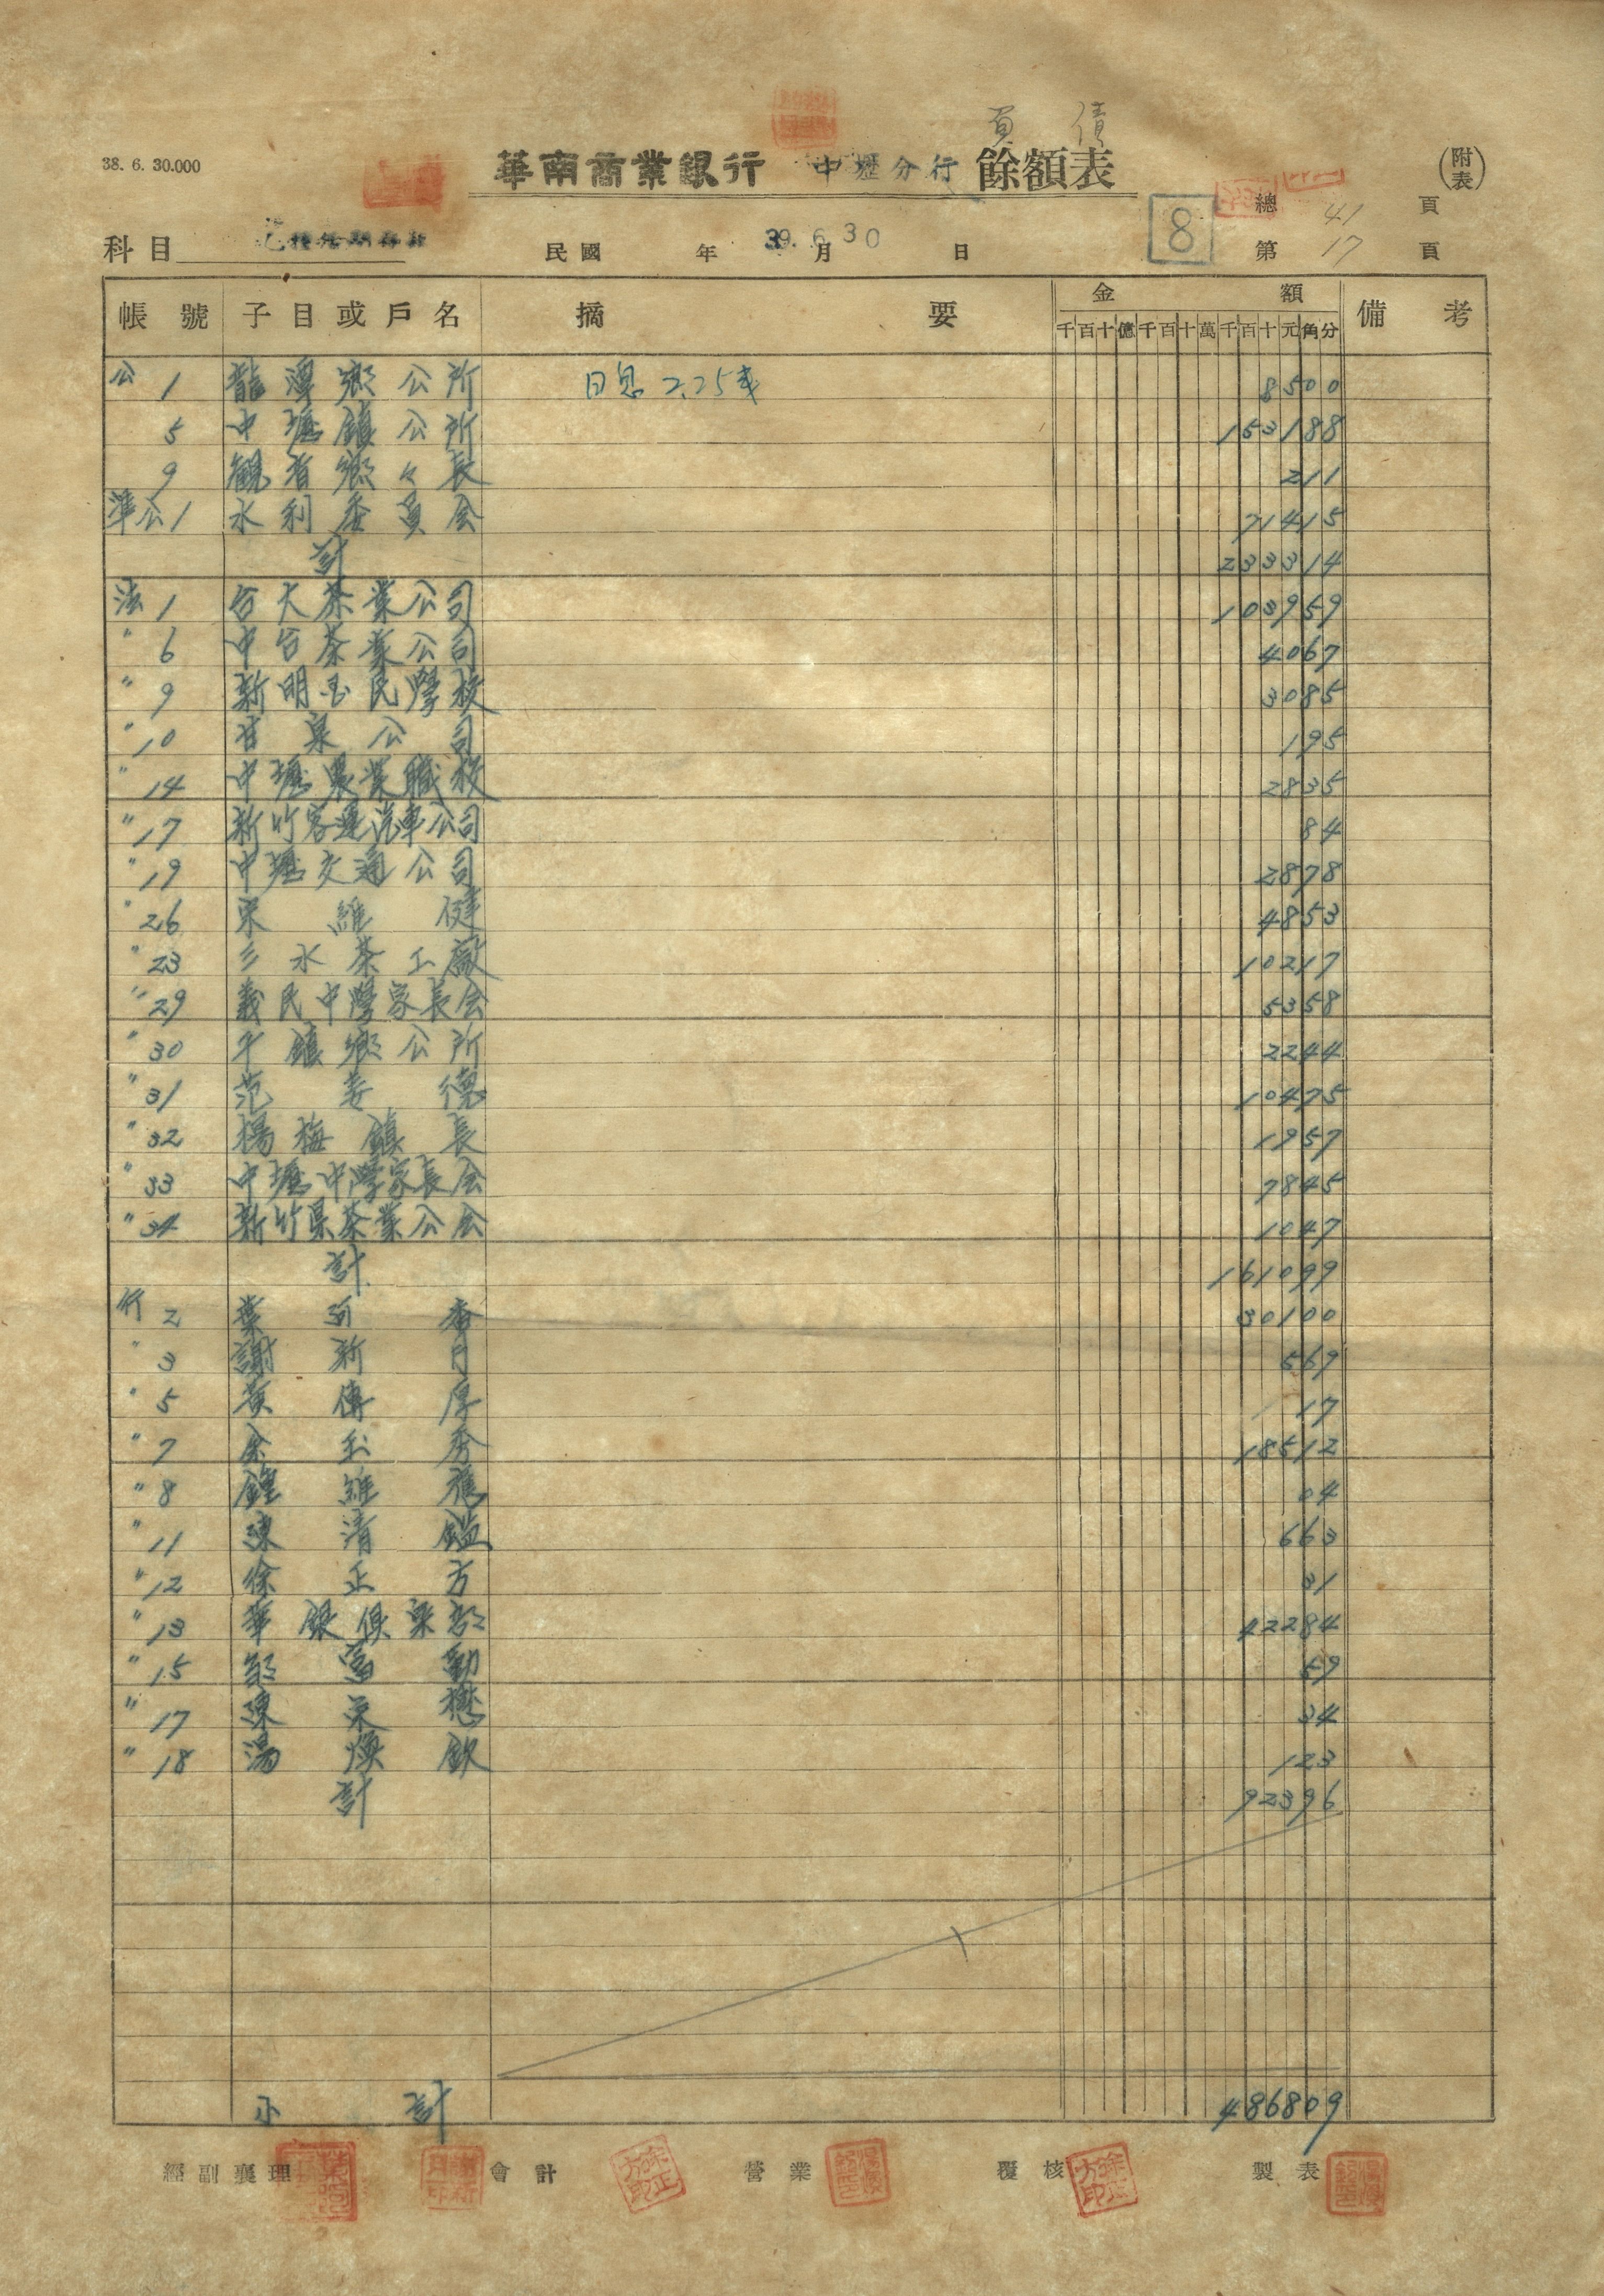 負債
38. 6. 30.000 華南商業銀行 中壢分行 餘額表 (附表)
總 41 頁
科目 民國 39年 6月 30日 8 第 17 頁
帳號 子目或戶名 摘要 金額 備考
千百十億千百十萬千百十元角分
公 1 龍潭鄉公所 日息 2.25 8500
5 中壢鎮公所 153188
9 観音鄉々長 211
準公1 水利委員会 71415
計 233314
法 1 台大茶業公司 103959
〃 6 中台茶業公司 4067
〃 9 新明国民學校 3085
〃 10 甘泉公司 195
〃 14 中壢農業職校 2835
〃 17 新竹客運汽車公司 84
〃 19 中壢交通公司 2878
〃 26 宋維健 4853
〃 23 三水茶工廠 10217
〃 29 義民中學家長会 5358
〃 30 平鎮鄉公所 2244
〃 31 范姜德 10475
〃 32 楊梅鎮長 1957
〃 33 中壢中學家長会 7845
〃 34 新竹県茶業公会 1047
計 161099
行 2 葉阿番 30100
〃 3 謝新月 569
〃 5 黃傳厚 17
〃 7 余玉秀 18512
〃 8 鐘維穗 04
〃 11 陳清鎰 663
〃 12 徐正方 31
〃 13 華銀俱楽部 42284
〃 15 鄒萬勳 59
〃 17 陳栄懋 34
〃 18 湯煥欽 123
計 92396
小計 486809
經副襄理 會計 營業 覆核 製表